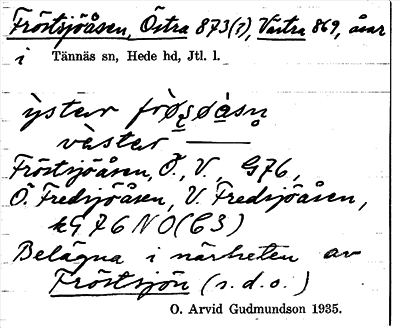 Fröstsjöåsen, Östra 873(?), Västra 869, åsar
i Tännäs sn, Hede hd, Jtl. l.
vàster ———
Fröstsjöåsen, Ö., V., G76,
Ö. Fredsjöåsen, V. Fredsjöåsen,
kG 76 NO(C3)
Belägna i närheten av
Fröstsjön (s.d.o.)
O. Arvid Gudmundson 1935.